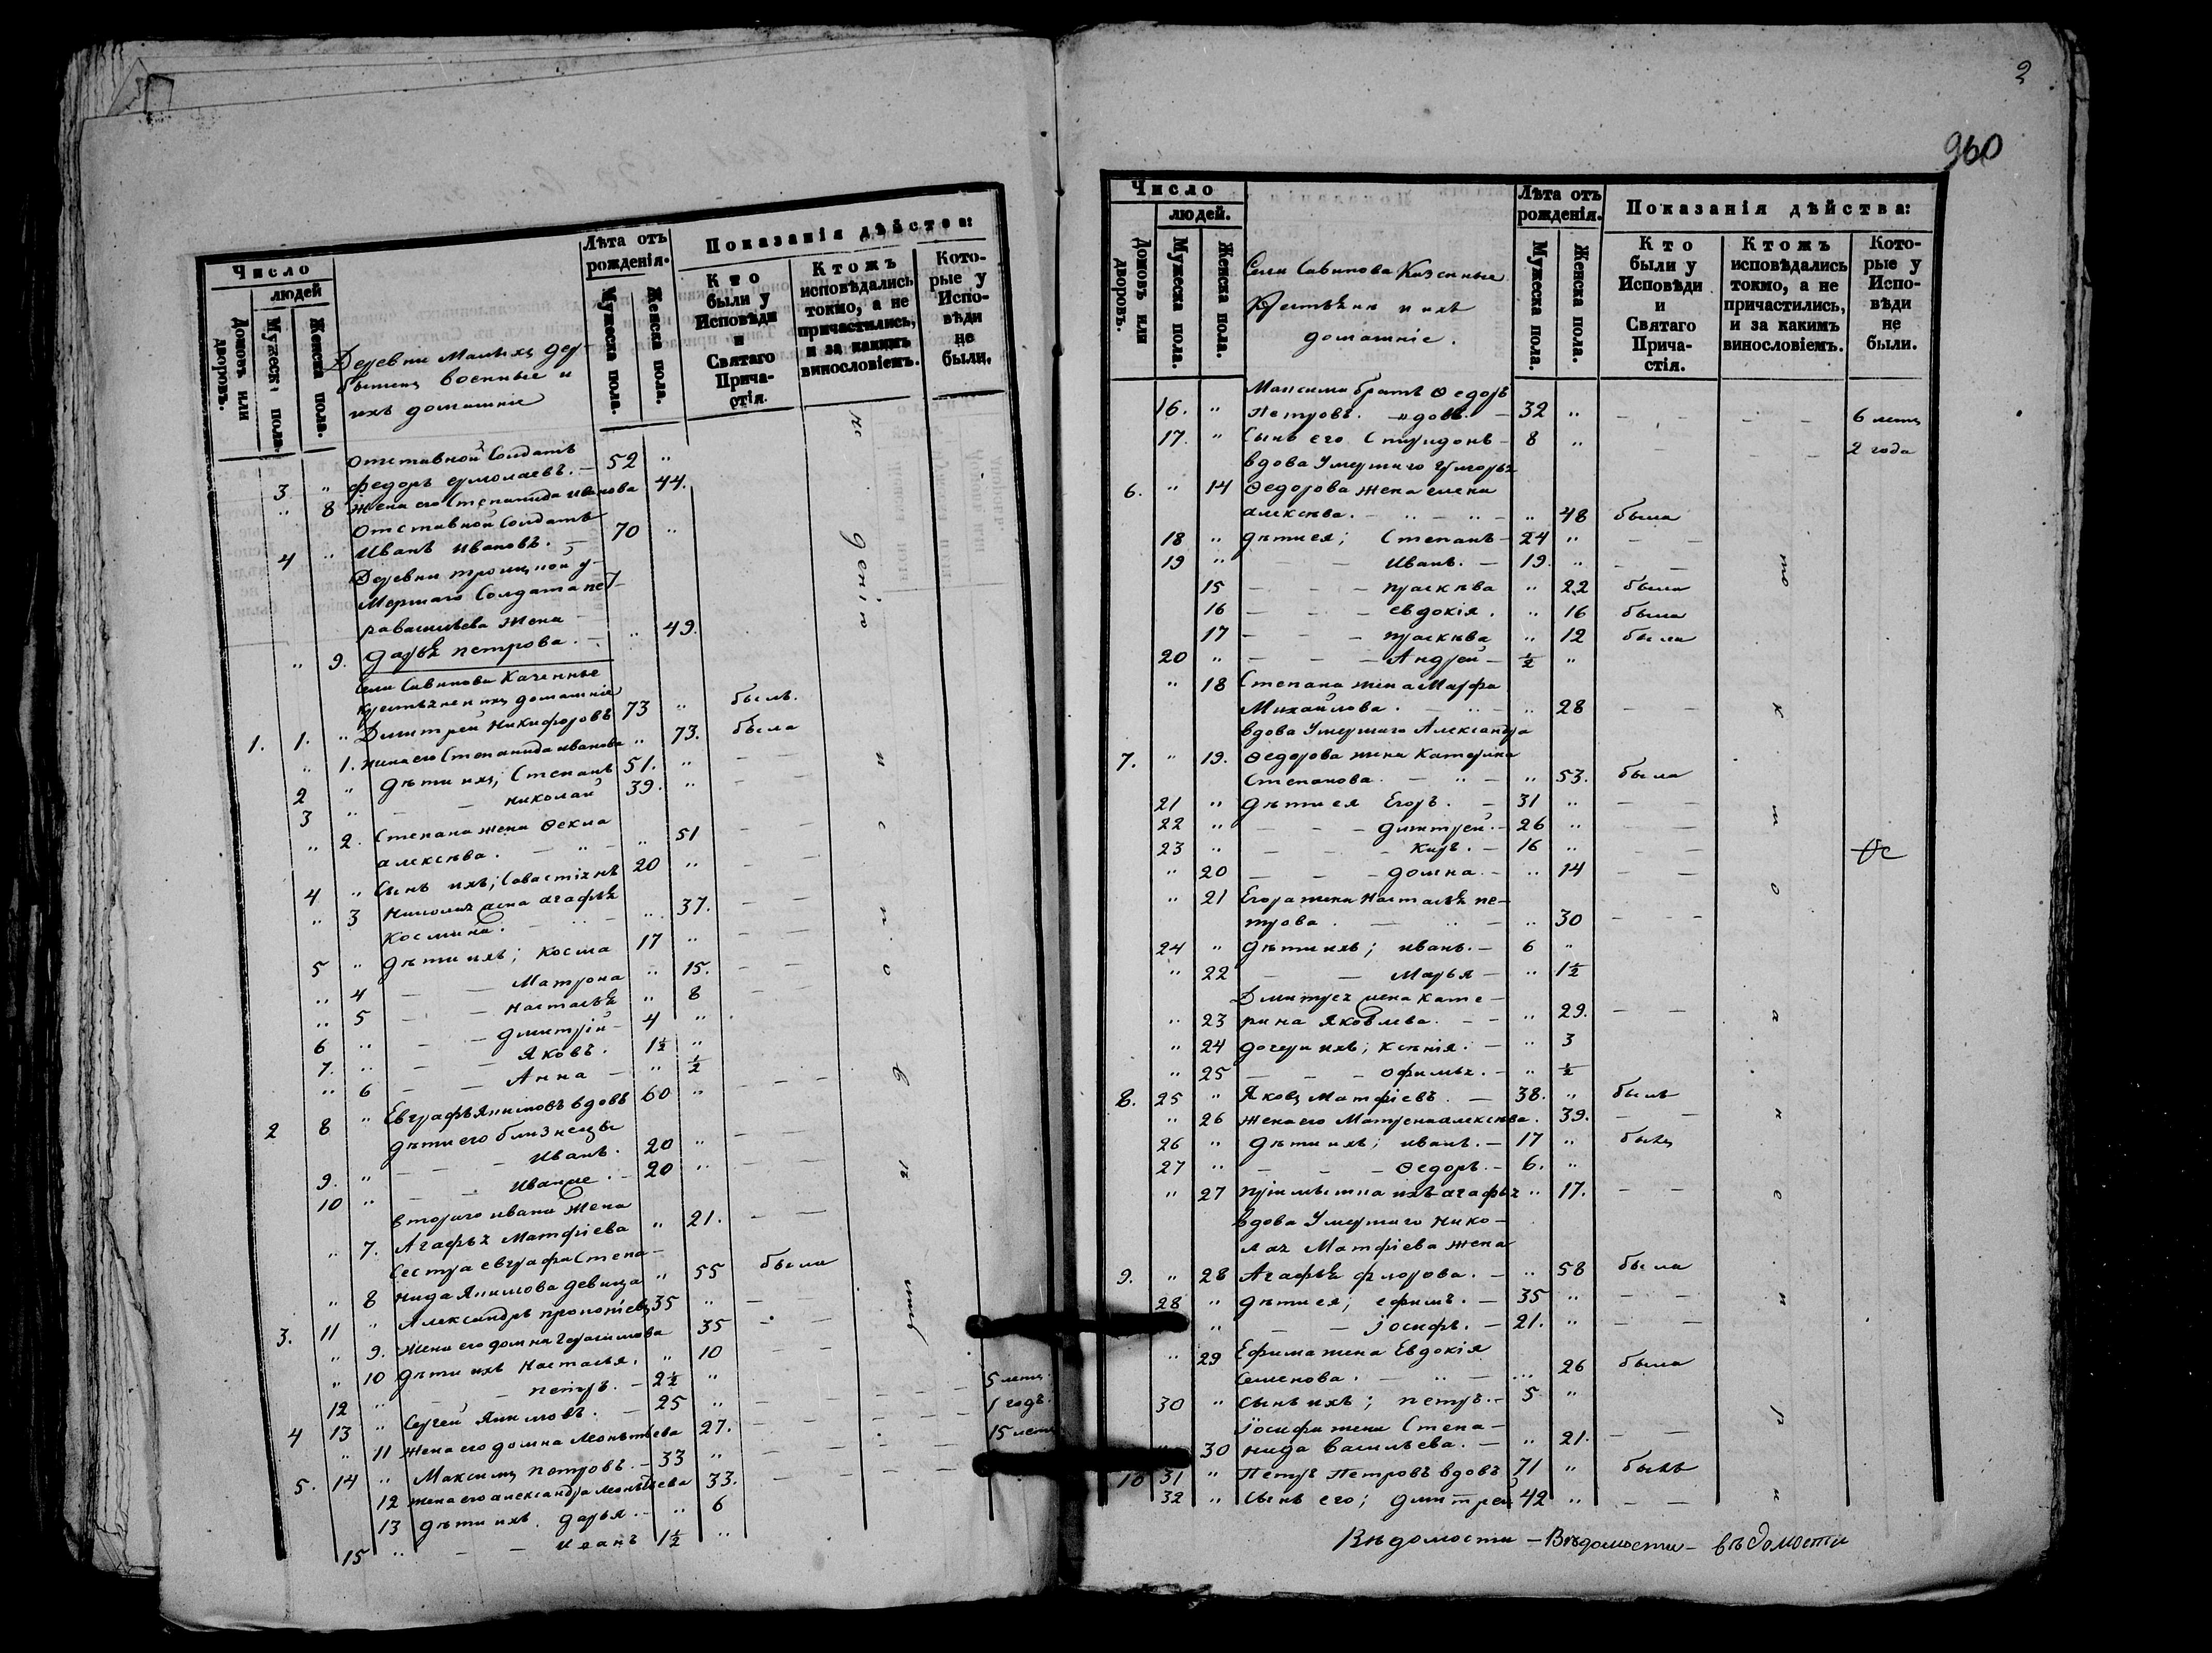 Число
людей
Домовъ или дворовъ.
Мужеск: пола.
Женска пола.
Деревни Малыхъ Дер-
бышец военные и
ихъ домашніе
Лѣта отъ рожденія.
Мужеска пола.
Женска пола.
Показанія дѣйства:
Кто были у Исповѣди и Святаго Причастія.
Ктожъ исповѣдались токмо, а не причастились, и за какимъ винословіемъ.
Которые у Исповѣди не были.
Отставной Солдатъ
3 " федоръ ермолаевъ. – 52 "
" 8 жена его Степанида иванова 44.
Отставной Солдатъ
4 " Иванъ ивановъ. – 70 "
Деревни троицкой у-
мершаго Солдата пет-
жена –
" 9. дарья петрова. – " 49.
Села Савинова Казенные
крестьяне и ихъ домашніе
1. 1. " Димитрей Никифоровъ 73 " былъ.
" 1. жена его Степанида иванова " 73. была
2 " дѣти ихъ; Степанъ 51. " – –
3 " – николай 39. " – –
" 2. Степана жена Ѳекла
алексѣва. – " – " 51 – –
4 " Сынъ ихъ; Савастіянъ 20 " – –
" 3 Николая жена агафья
Космина. – – " 37. – –
5 " дѣти ихъ; Косма 17 " – –
" 4 – – Матрона " 15. – –
" 5 – – настасья " 8 – –
6 " – – дмитрій – 4 "
7. " – – Яковъ. 1½ "
" 6 – – Анна – " ½
2 8 " Евграфъ Якимовъ вдовъ 60 " – – –
дѣти его близнецы
9. " – – – Иванъ. 20 " – –
10 " – – Иванъ же. – 20 " – –
втораго ивана жена
" 7. Агафья Матфіева " 21. – –
Сестра евграфа Степа-
" 8 нида Якимова девица " 55 была
3. 11 " Александръ прокопіевъ 35 " – –
" 9. жена его домна Герасимова 35 – –
" 10 дѣти ихъ Настасья. " 10 – –
12 " – петръ. – 2½ "
4 13 " Сергей Якимовъ. – 25 " – – – – 5 летъ
" 11 жена его домна Леонтьева 27. – – – – 1 годъ.
5. 14 " Максимъ петровъ. – 33 " – – – – 15 летъ
12 жена его александра леонтьева 33. – – – –
13 дѣти ихъ. дарья. – " 6
15 " – – иванъ 1½ "
2
960
Число
людей.
Домовъ или дворовъ.
Мужеска пола.
Женска пола.
Села Савинова Казенные
Крестьяне и ихъ
домашніе.
Лѣта отъ рожденія.
Мужеска пола.
Женска пола.
Показанія дѣйства:
Кто были у Исповѣди и Святаго Причастія.
Ктожъ исповѣдались токмо, а не причастились, и за какимъ винословіемъ.
Которые у Исповѣди не были.
Максима братъ Ѳедоръ
16. " Петровъ. вдовъ. – 32 " – – – – 6 летъ
17. " Сынъ его Спиридонъ – 8 " – – 2 года
вдова Умершаго Григорья
6. " 14 Ѳедорова жена елена
алексѣва. – " – " – " 48 была
18 " дѣти ея; Степанъ – 24 " – –
19 " – – Иванъ. – 19. " – –
15 – – – прасковья " 22 была
16 – – – евдокія. " 16 была
17 – – – прасковья " 12 была
20 " – – – Андрей – ½ "
" 18 Степана жена Марфа
Михайлова. – " – " 28 – –
вдова Умершаго Александра
7. " 19. Ѳедорова жена Катерина
Степанова. – " – " 53. была
21 " дѣти ея Егоръ. – 31 " – –
22 " – – – димтрей. – 26 " – –
23 " – – – Киръ. – 16 " – –
" 20 – – – домна. – " 14 – –
" 21 Егора жена Настасья пе-
трова. – " – " 30 – – –
24 " дѣти ихъ; иванъ. – 6 "
" 22 – – Марья – " 1½
Дмитрея жена Кате-
" 23 рина Яковлева. – – " 29. – –
" 24 дочери ихъ; Ксенія. – " 3
" 25 – – – офимья. – " ½
8. 25 " Яковъ Матфіевъ. – 38. " былъ
" 26 жена его Матрена алексѣва. 39. – –
26 " дѣти ихъ; иванъ. – 17 " былъ
27 " – – – Ѳедоръ. – 6. "
" 27 пріимышна ихъ агафья " 17. – –
вдова Умершаго Нико-
лая Матфіева жена
9. " 28 Агафья флорова. – " 58 была
28 " дѣти ея; ефимъ. – 35 " – –
" – – іосифъ. – 21. " – –
" 29 Ефима жена Евдокія
Семенова. – " – " 26 была
30 " сынъ ихъ; петръ. – 5 "
іосифа жена Степа-
" 30 нида Васильева. – " 21. – –
10 31 " Петръ Петровъ вдовъ 71 " былъ
32 " Сынъ его; дмитрей 42 " – –
Вѣдомости – Вѣдомости – вѣдомости